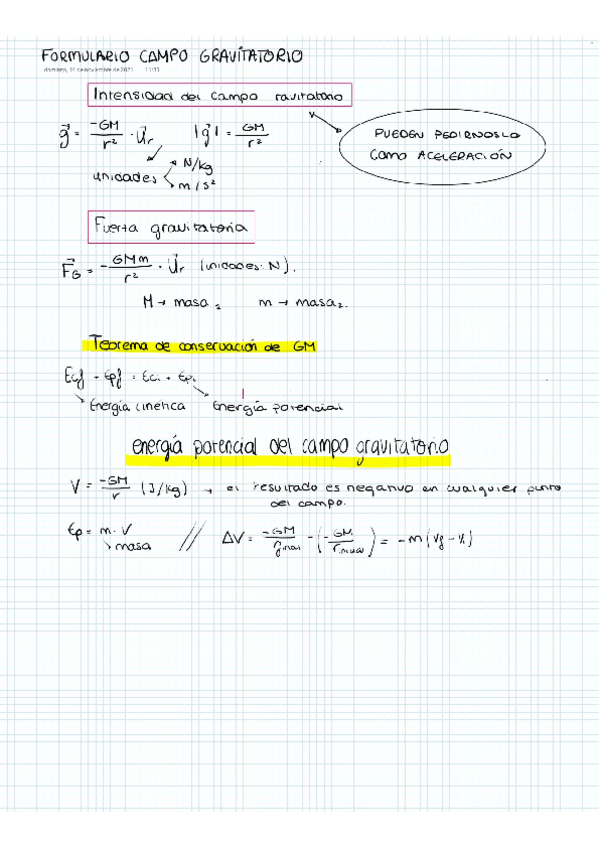 FORMULARIO CAMPO GRAVITATORIO
domingo, de noviembre de 2021 11:11
Intensidad del campo ravitatorio
g⃗ = -GM/r² · u⃗r |g⃗| = GM/r²
PUEDEN PEDIRNOSLO
COMO ACELERACIÓN
unidades → N/kg
m/s²
Fuerta gravitatoria
F⃗G = - GMm/r² · u⃗r (unidades: N).
M → masa m → masa₂.
Teorema de conservación de GM
Ecf + Epf = Eci + Epi
Energía cinética Energía potencial
energía potencial del campo gravitatorio
V = -GM/r (J/kg) → el resultado es negativo en cualquier punto
del campo.
Ep = m · V // ΔV = -GM/rfinal - (-GM/rinicial) = -m(Vf - Vi)
masa